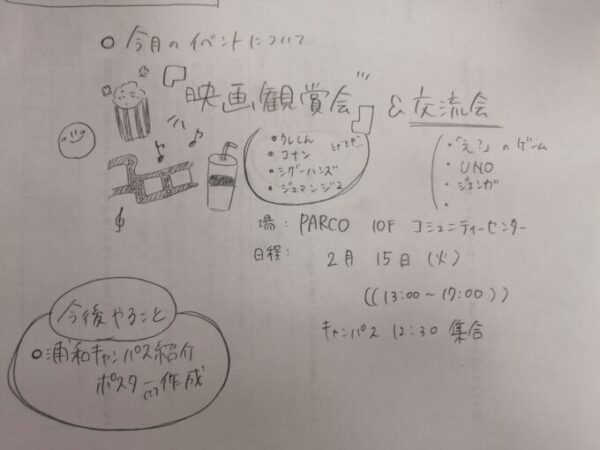 ○ 今月のイベントについて
『映画観賞会』 & 交流会
・クレしん
・コナン
・シザーハンズ
・ジュマンジ2
などなど…
・「え?」のゲーム
・UNO
・ジェンガ
・
場: PARCO 10F コミュニティーセンター
日程: 2月 15日 (火)
((13:00〜17:00))
キャンパス 12:30 集合
今後やること
○浦和キャンパス紹介
ポスターの作成